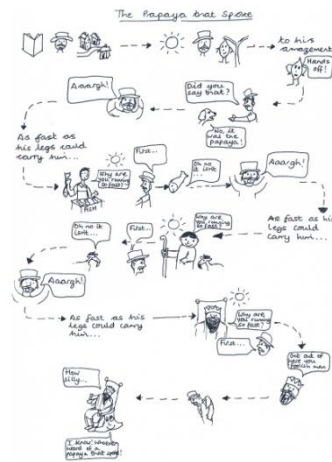 The Papaya that Spoke
to his
amazement
Hands
off!
Did you
say that?
Aaaargh!
No, it
was the
papaya!
As fast as
his legs could
carry him...
Why are
you running
so fast?
FISH
First...
Oh no
it isn't
Aaargh!
As fast as
his legs could
carry him...
Why are
you running
so fast?
First...
Oh no it
isn't...
Aaargh!
As fast as his
legs could carry
him...
Why are
you running
so fast?
First...
Get out of
here you
foolish man
How
silly...
I know! Whoever
heard of a
papaya that spoke!